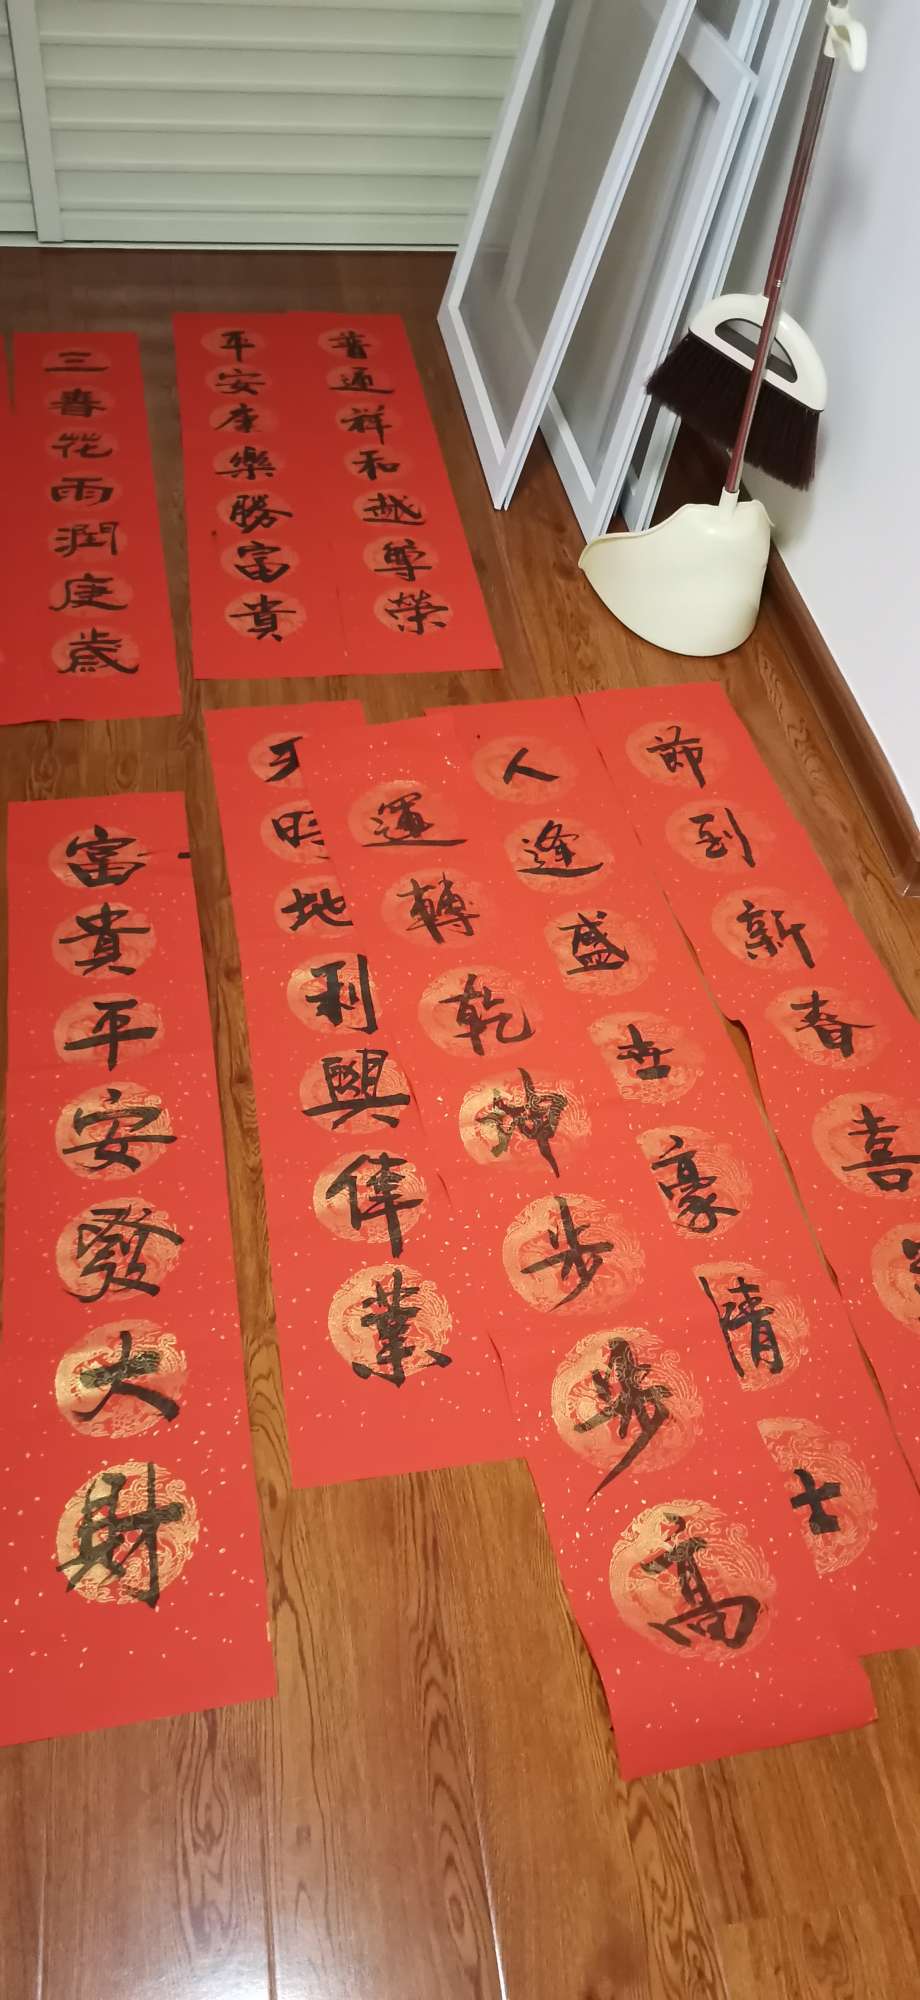 普通祥和越尊榮
平安康樂勝富貴
三春花雨潤庚歲
節到新春喜
人逢盛世豪情
運轉乾坤步步高
地利興偉業
富貴平安發大財